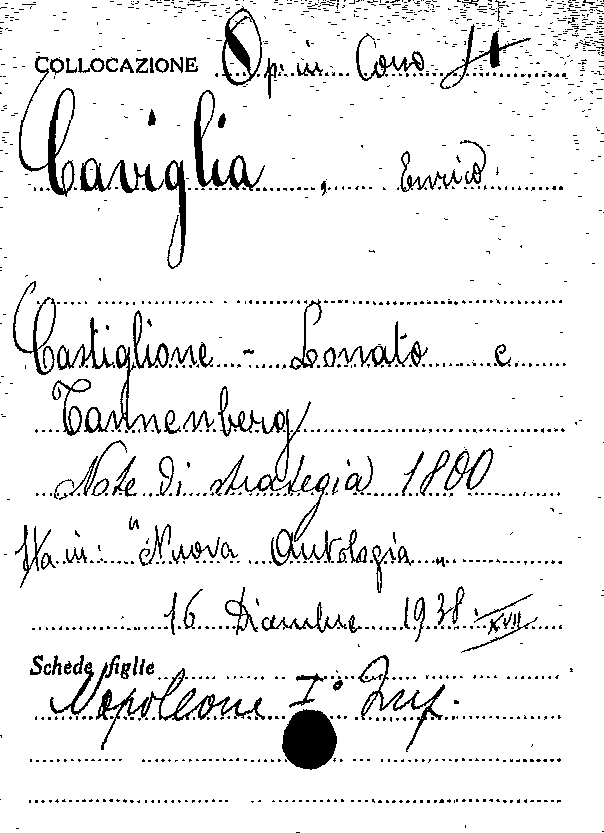 COLLOCAZIONE Op. in Corso
Caviglia, Enrico
Castiglione - Lonato e
Tannenberg
Note di strategia 1800
Sta in: "Nuova Antologia"
16 Dicembre 1938. XVII
Schede figlie
Napoleone I° Imp.